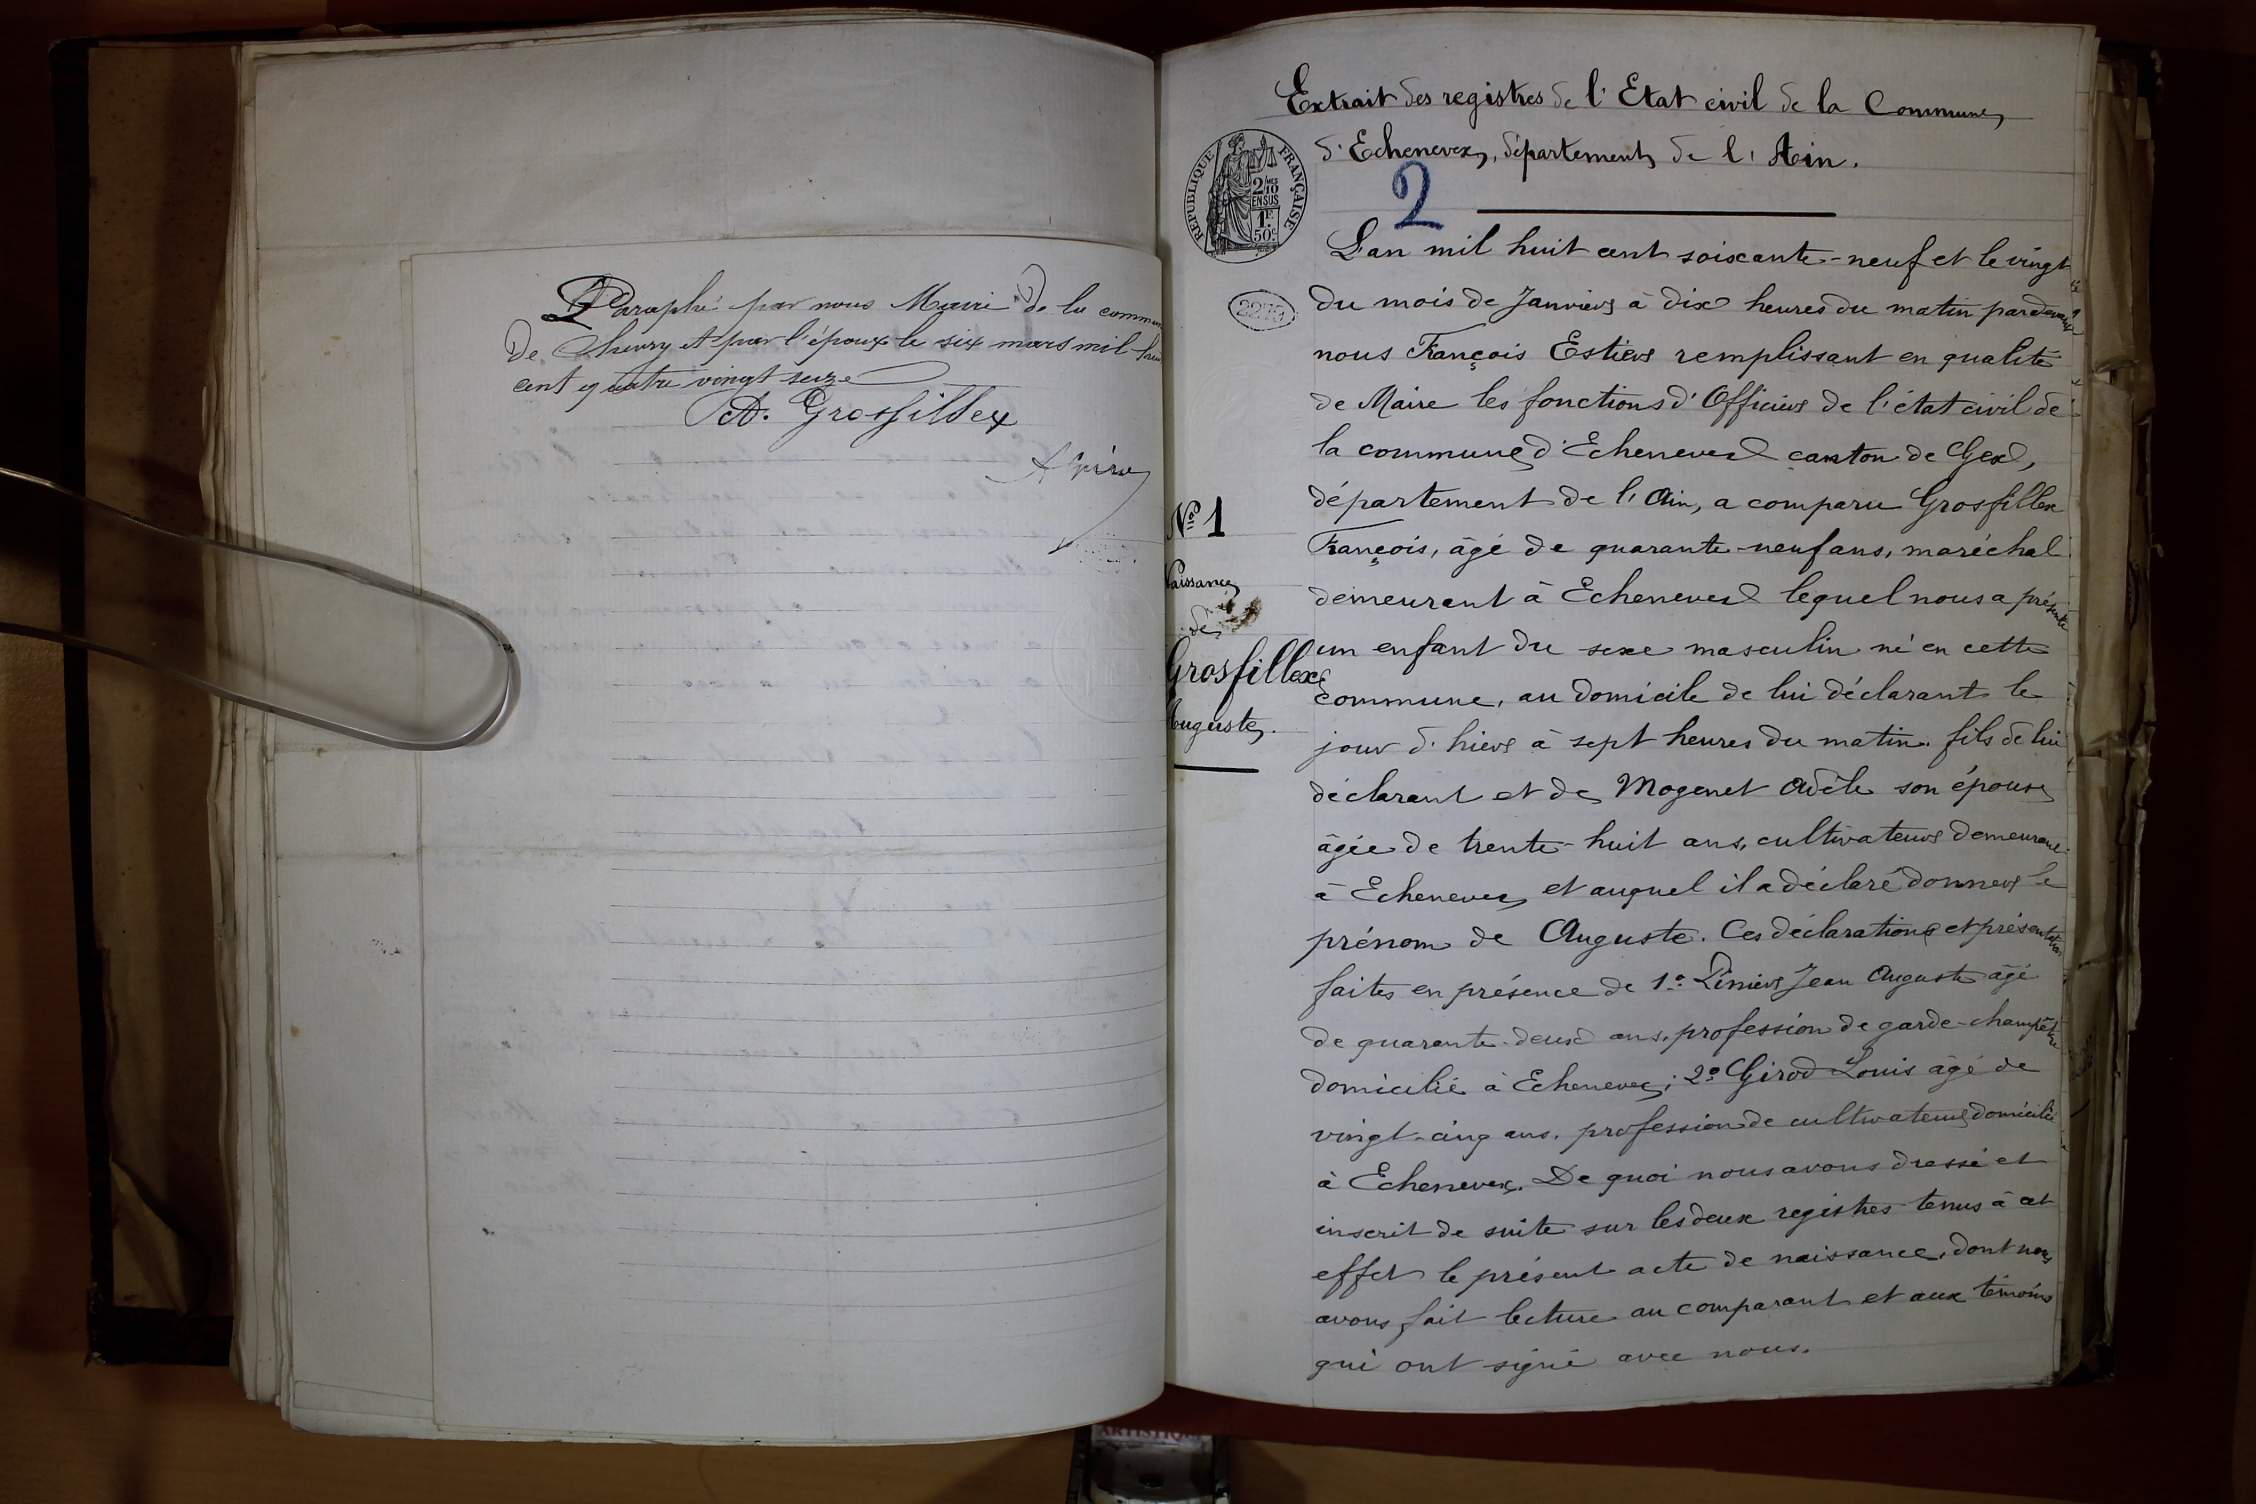 Paraphé par nous Maire de la commune
de Chevry et par l'époux le six mars mil huit
cent quatre vingt seize
A. Grosfillex
Extrait des registres de l'Etat civil de la Commune
d'Echenevex, département de l'Ain.
REPUBLIQUE FRANÇAISE
2/10MES
EN SUS
1F
50c
2
L'an mil huit cent soixante-neuf et le vingt
du mois de Janvier à dix heures du matin pardevant
nous François Estier remplissant en qualité
de Maire les fonctions d'Officier de l'état civil de
la commune d'Echenevex canton de Gex,
département de l'Ain, a comparu Grosfillex
François, âgé de quarante-neuf ans, maréchal
demeurant à Echenevex lequel nous a présenté
un enfant du sexe masculin né en cette
commune, au domicile de lui déclarant le
jour d'hier à sept heures du matin. fils de lui
déclarant et de Mogenet Adèle son épouse
âgée de trente-huit ans, cultivateurs demeurant
à Echenevex et auquel il a déclaré donner le
prénom de Auguste. Ces déclarations et présentation
faites en présence de 1º Jean Auguste âgé
de quarante-deux ans, profession de garde-champêtre
domicilié à Echenevex; 2º Girod Louis âgé de
vingt-cinq ans, profession de cultivateur domicilié
à Echenevex. De quoi nous avons dressé et
inscrit de suite sur les deux registres tenus à cet
effet le présent acte de naissance, dont nous
avons fait lecture au comparant et aux témoins
qui ont signé avec nous.
No 1
Naissance
de
Grosfillex
Auguste.